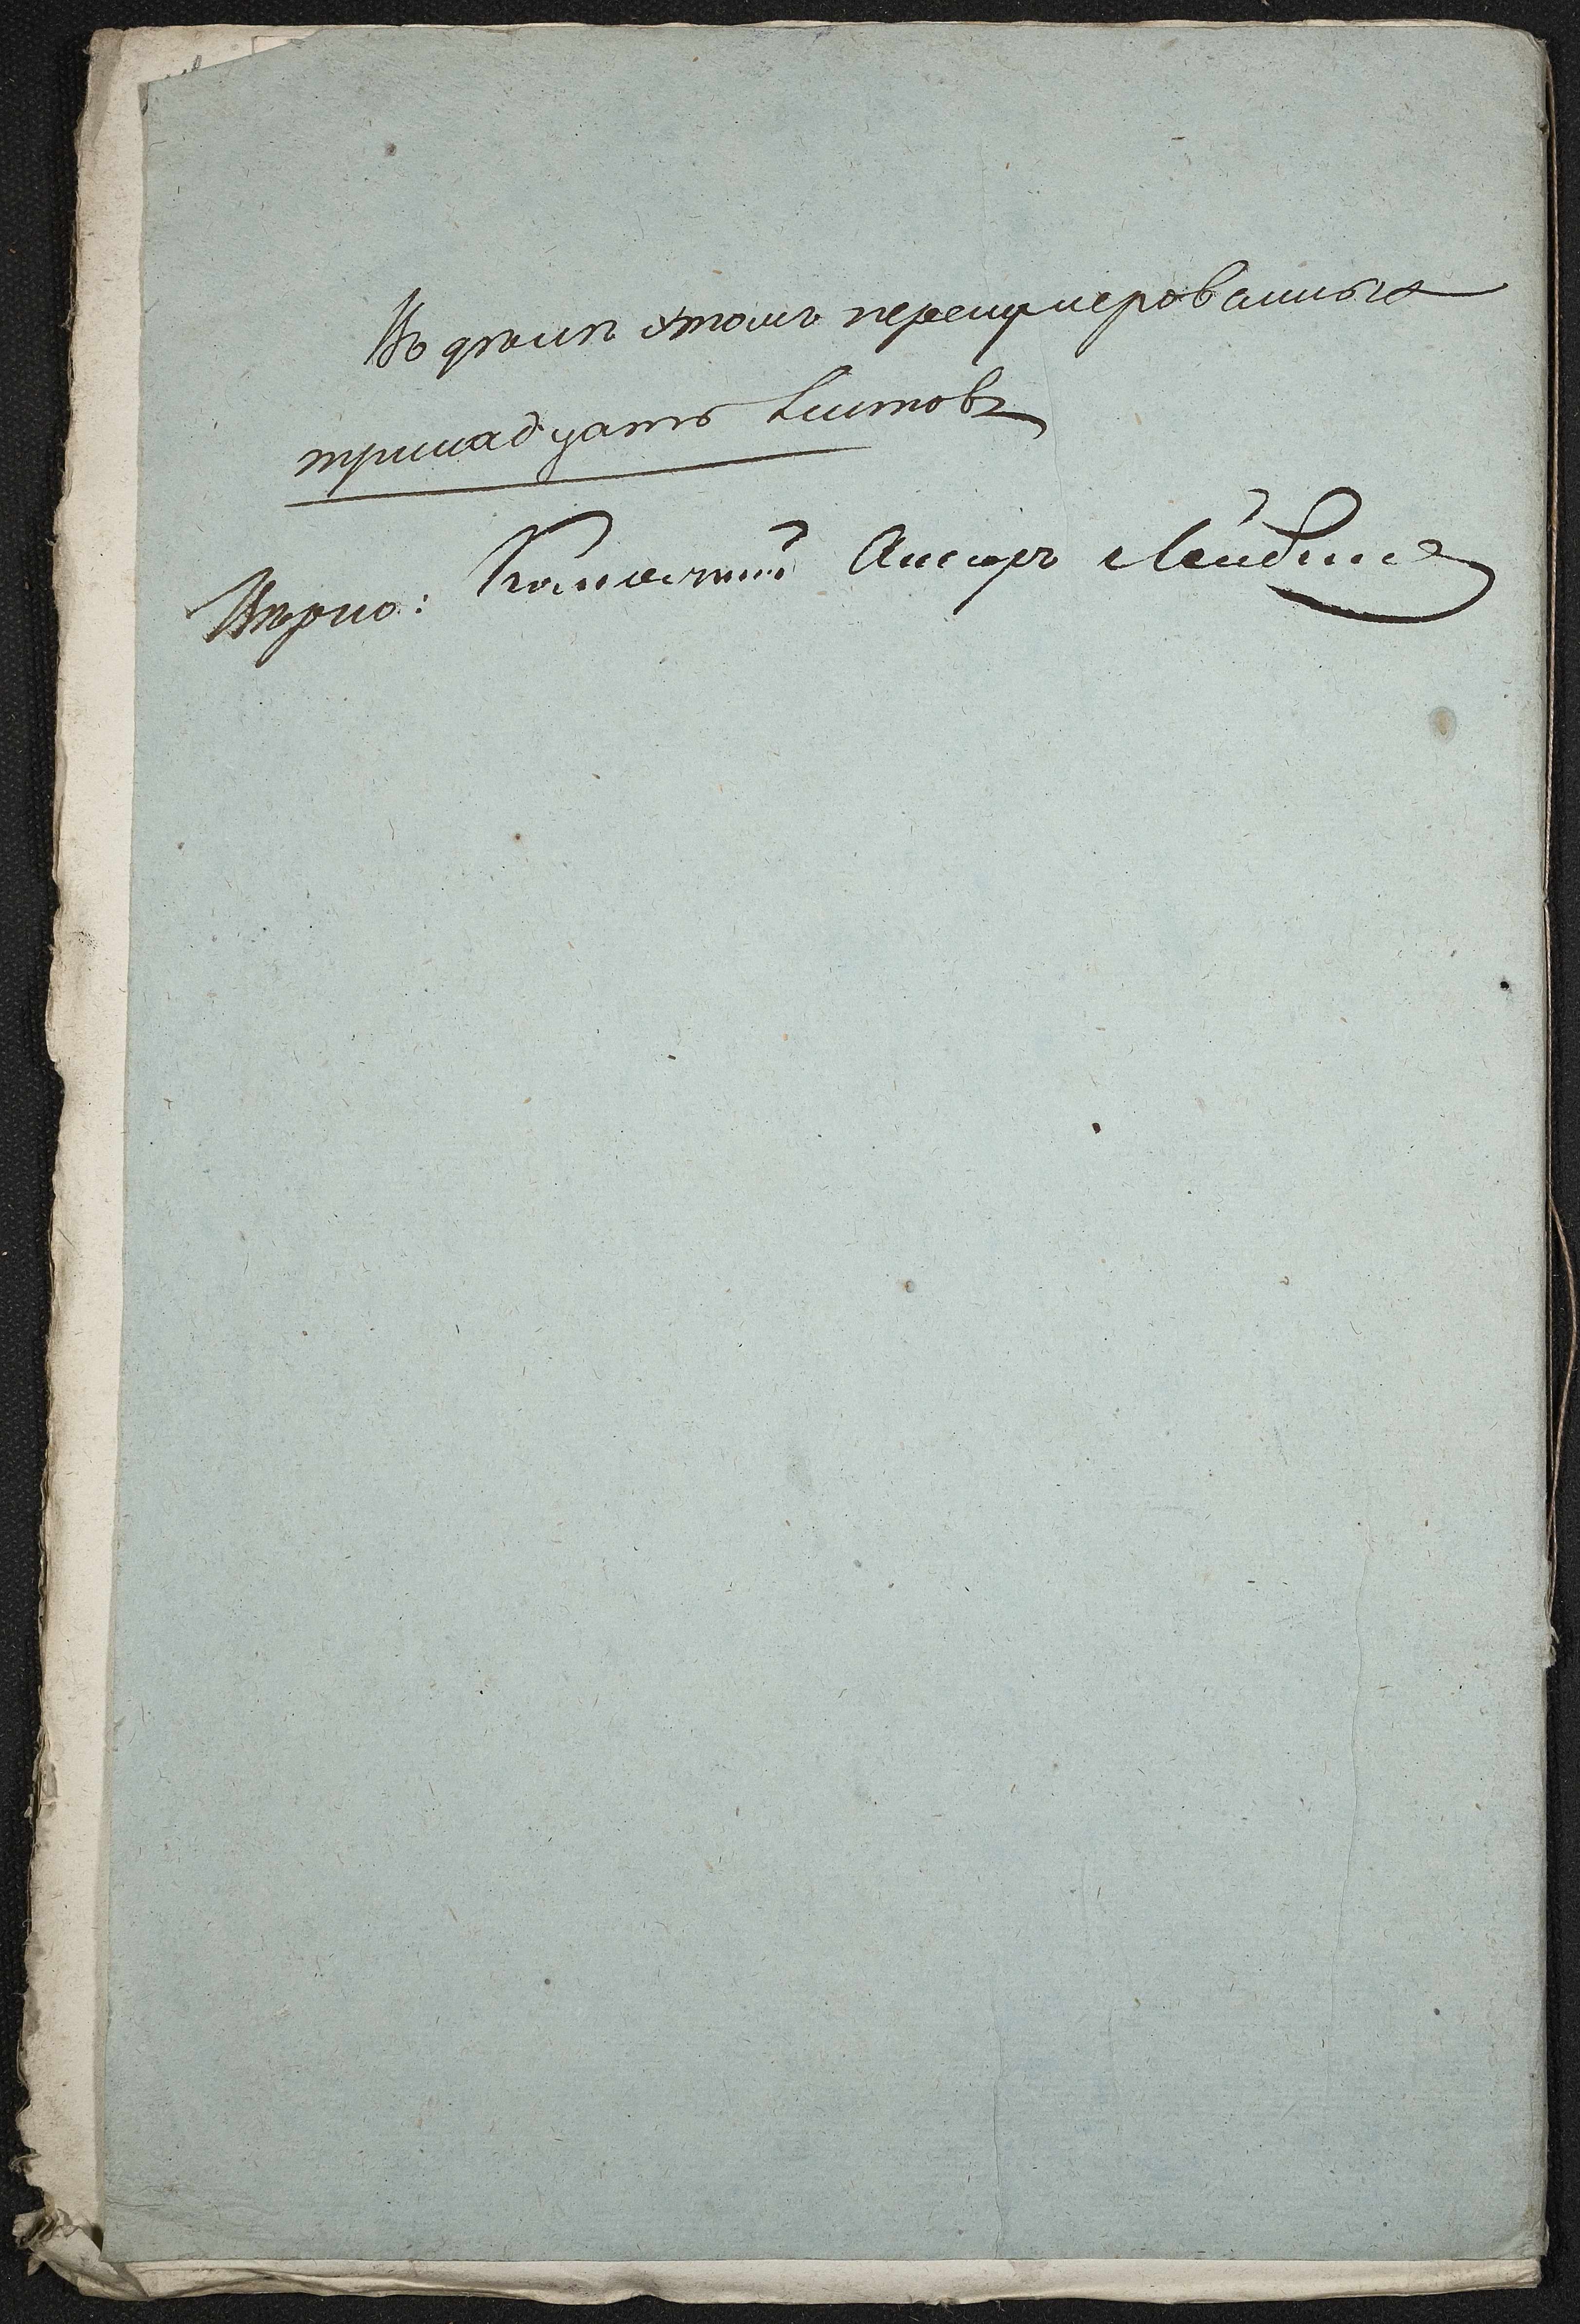 Въ дѣлѣ этомъ перенумерованныхъ
тринадцать листовъ
Вѣрно: Коллежскій Ассесоръ